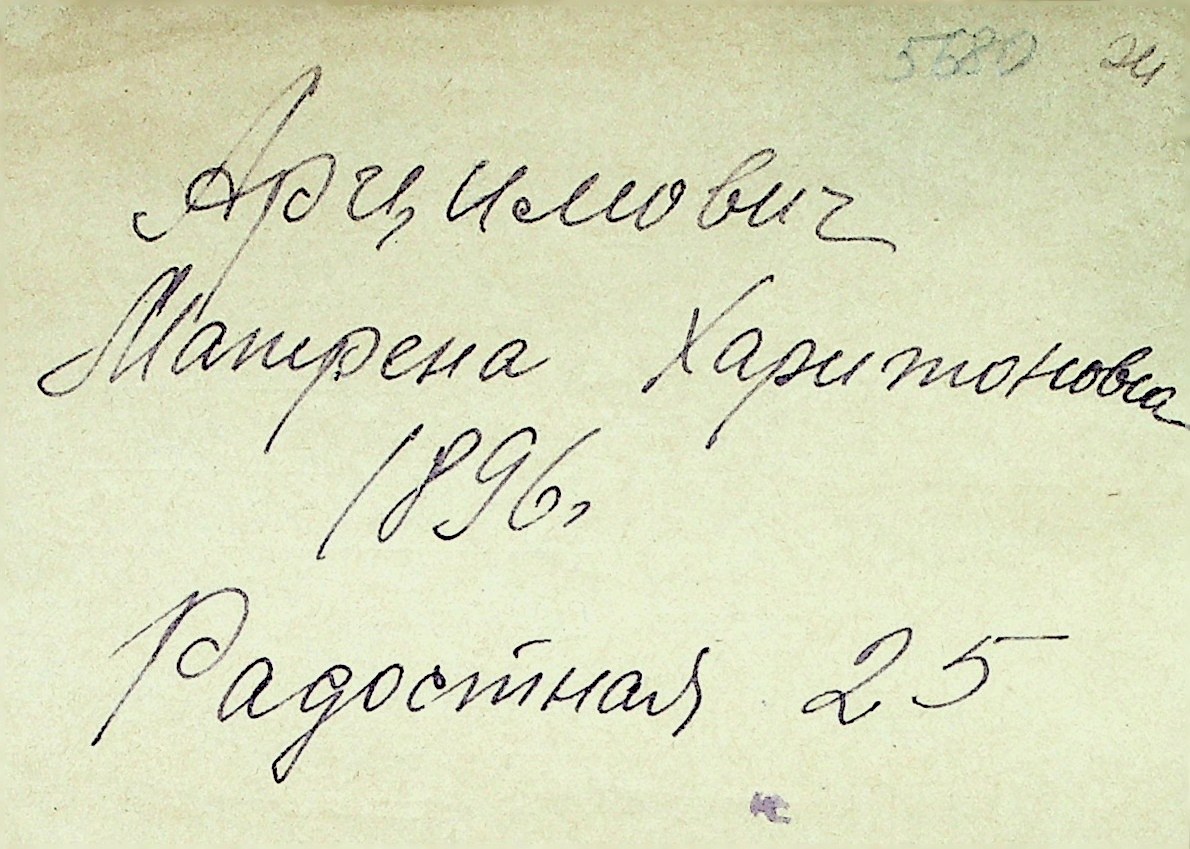 5680
Арцимович
Матрена Харитоновна
1896г
Радостная 25